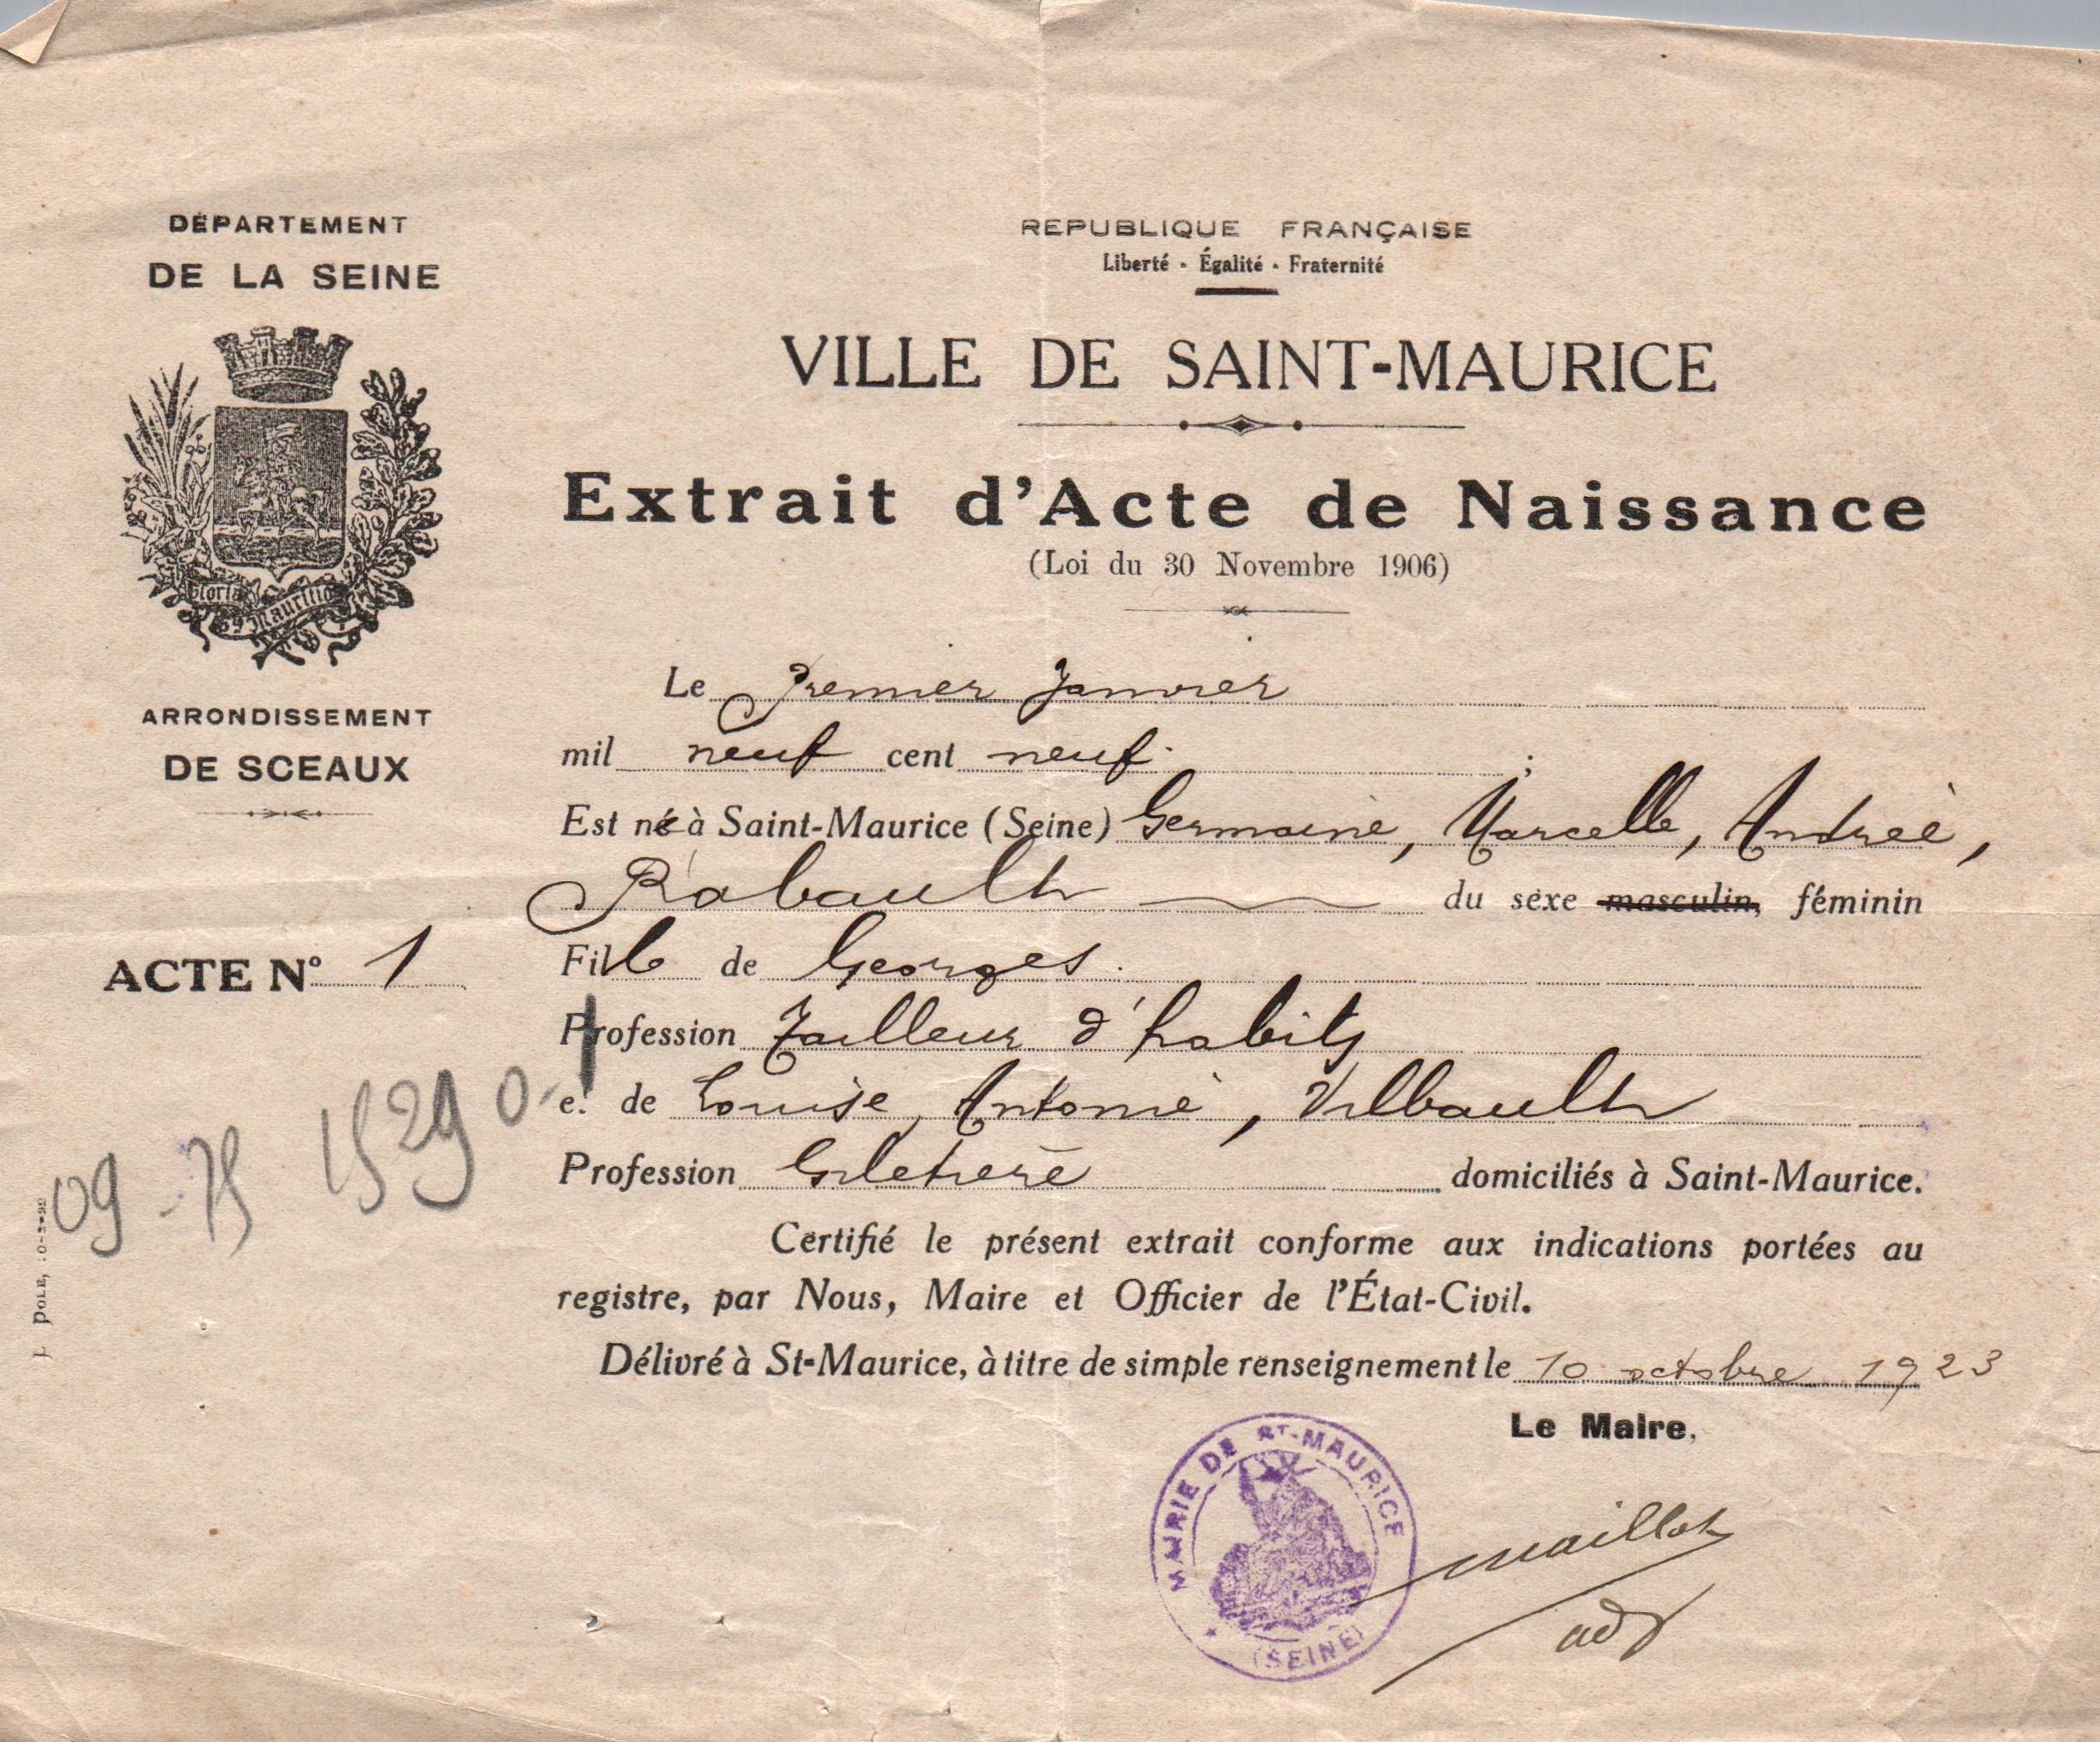 DÉPARTEMENT
DE LA SEINE
Gloria Mauritio
ARRONDISSEMENT
DE SCEAUX
ACTE N° 1
09 - 75 1529 0-
REPUBLIQUE FRANÇAISE
Liberté - Égalité - Fraternité
VILLE DE SAINT-MAURICE
Extrait d'Acte de Naissance
(Loi du 30 Novembre 1906)
Le Premier Janvier
mil neuf cent neuf ;
Est née à Saint-Maurice (Seine) Germaine, Marcelle, Andrée,
Rabault du sexe masculin, féminin
Fille de Georges
Profession Tailleur d'habits
et de Louise, Antonie, Vilbault
Profession Giletière domiciliés à Saint-Maurice.
Certifié le présent extrait conforme aux indications portées au
registre, par Nous, Maire et Officier de l'État-Civil.
Délivré à St-Maurice, à titre de simple renseignement le 10 octobre 1923
Le Maire,
MAIRIE DE ST-MAURICE
(SEINE)
Maillot
adj
DOLE,